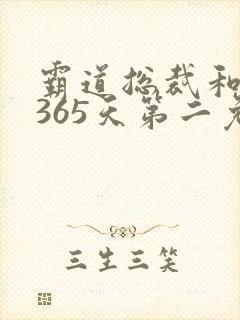 霸道总裁和
365天第二
三生三笑